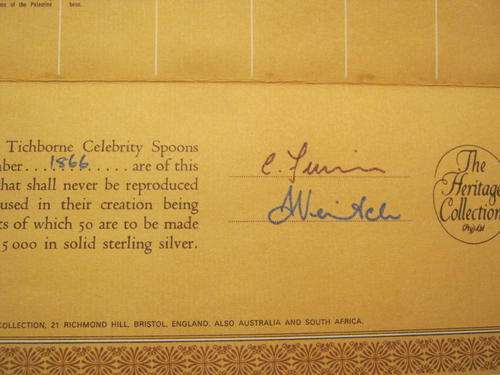 ns of the Palestine
bess.
Tichborne Celebrity Spoons
nber ...1866..... are of this
that shall never be reproduced
used in their creation being
ts of which 50 are to be made
5 000 in solid sterling silver.
The
Heritage
Collection
(Pty) Ltd
COLLECTION, 21 RICHMOND HILL, BRISTOL, ENGLAND. ALSO AUSTRALIA AND SOUTH AFRICA.